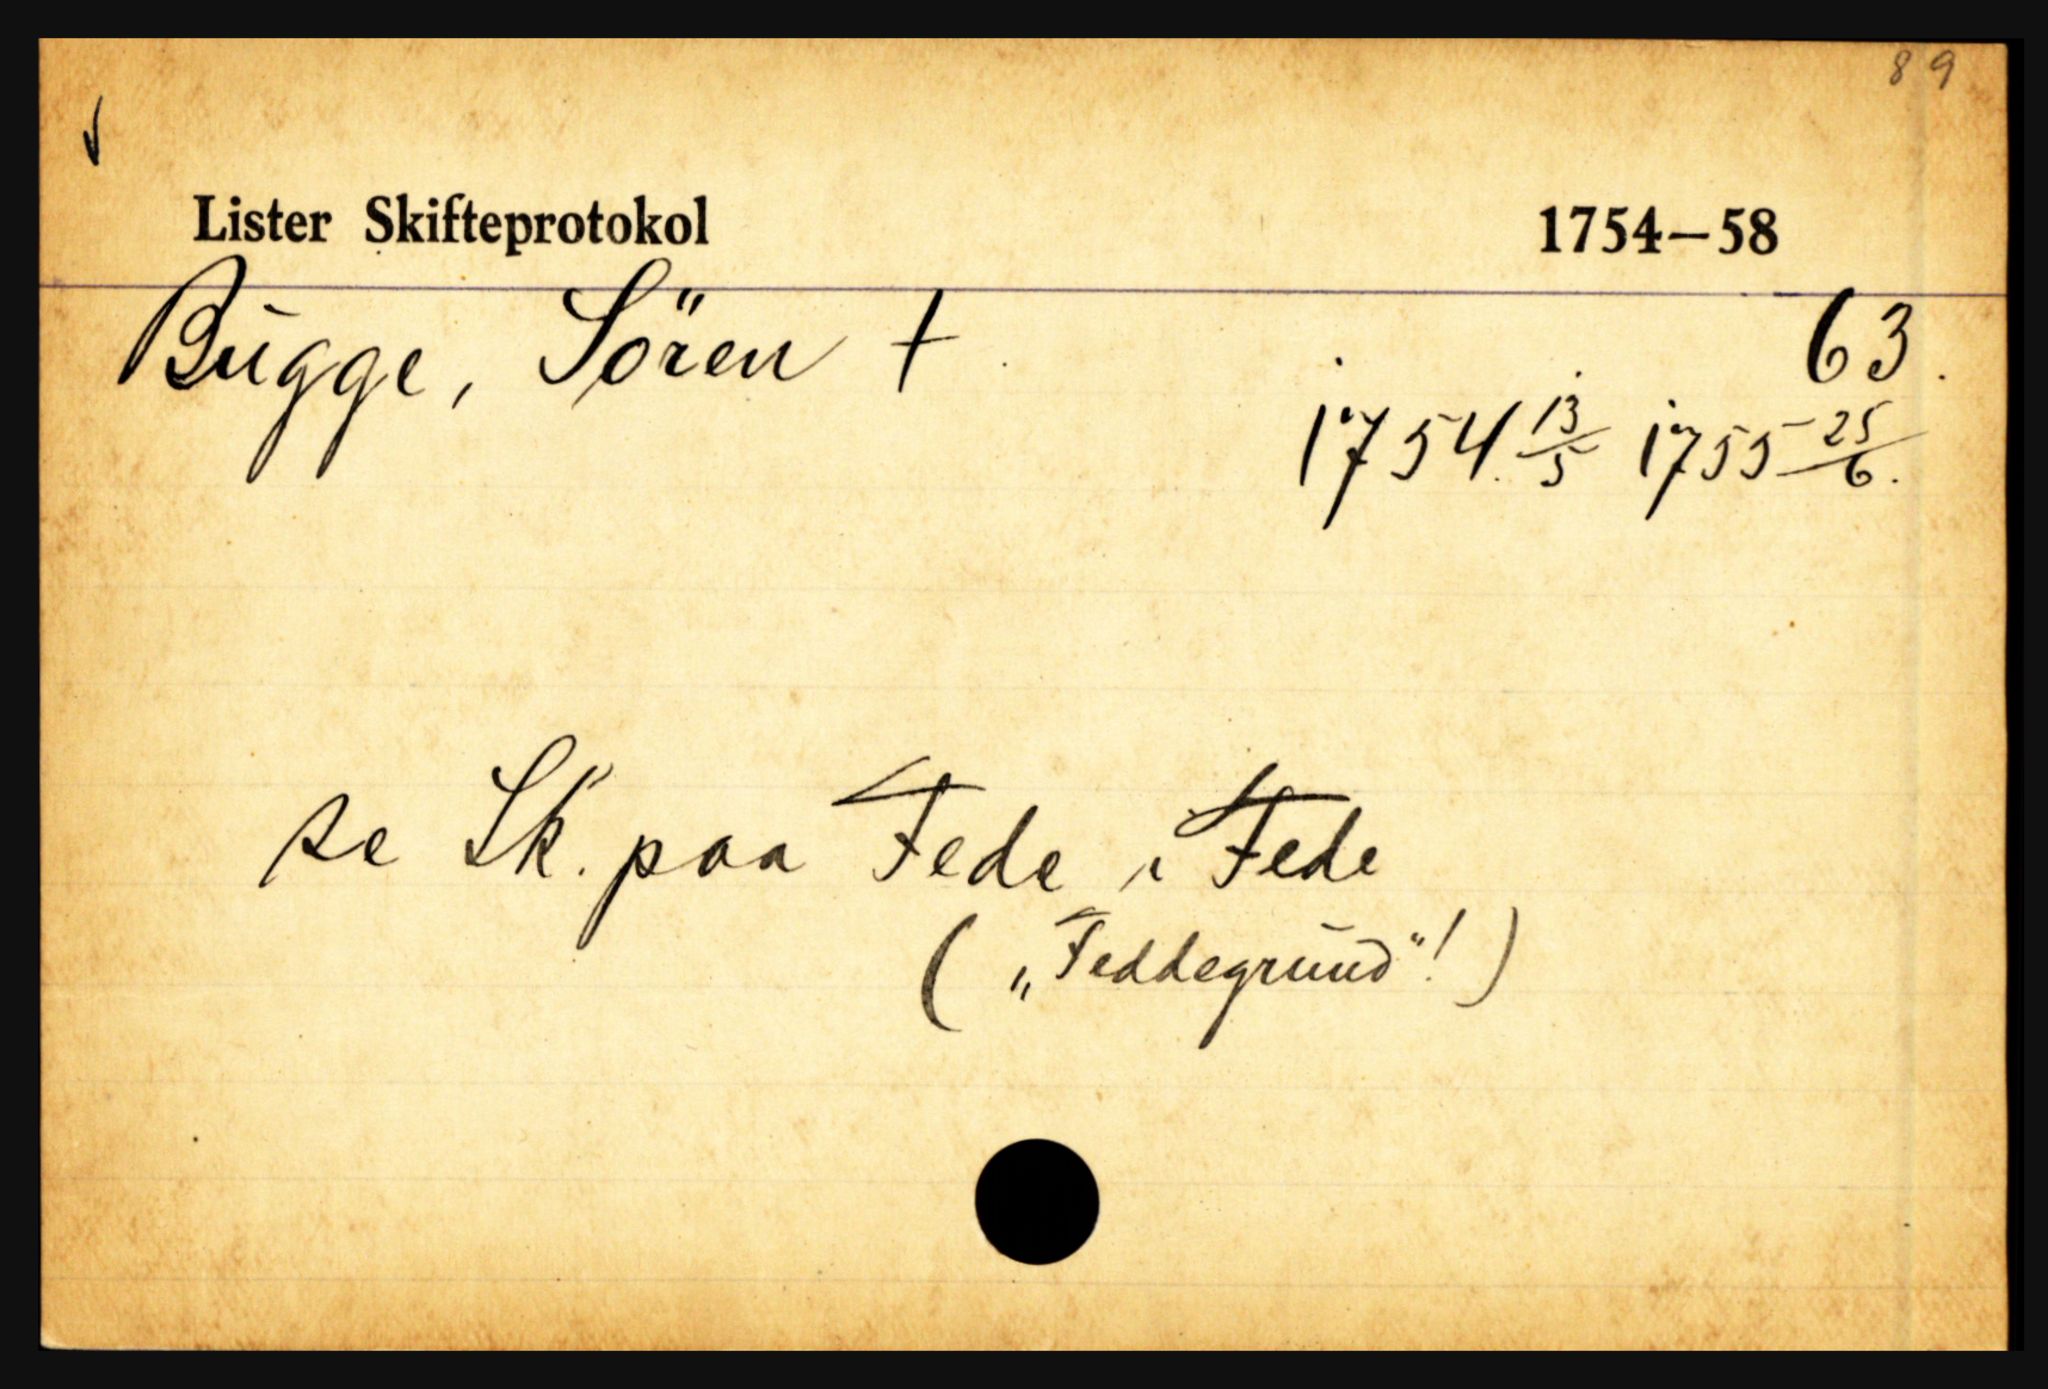 89
Lister Skifteprotokol 1754–58
Bugge, Sören † 63.
1754 13/5 1755 25/6.
se Sk. paa Fede i Fede
(„Feddegrund"!)